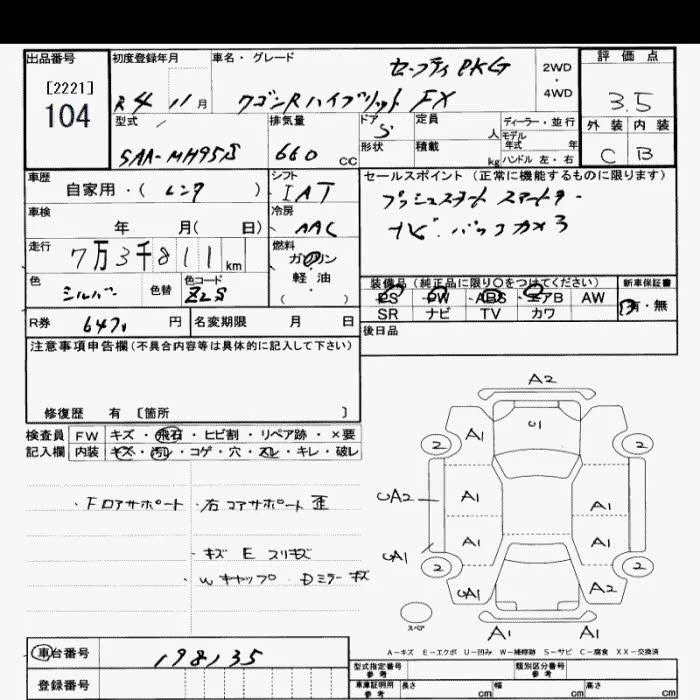 出品番号
[2221]
104
初度登録年月
R4 11月
車名・グレード
セーフティPKG
ワゴンRハイブリット FX
2WD
・
4WD
評価点
3.5
外装 内装
C B
型式
5AA-MH95S
排気量
660 cc
ドア
5
形状
定員
人
積載
kg
ディーラー・並行
モデル
年式 年
ハンドル 左・右
車歴
自家用・( レンタ )
シフト
IAT
冷房
AAC
車検
年 月( 日)
走行
7万3千811km
燃料
ガソリン
軽・油
( )
色
シルバー
色替
色コード
Z2S
セールスポイント(正常に機能するものに限ります)
プッシュスタート スマートキー
ナビ・バックカメラ
装備品(純正品に限り○をつけてください)
PS PW ABS エアB AW
SR ナビ TV カワ
新車保証書
有・無
後日品
R券 6470 円
名変期限 月 日
注意事項申告欄(不具合内容等は具体的に記入して下さい)
修復歴 有 [箇所 ]
検査員
記入欄
FW キズ・飛石・ヒビ割・リペア跡・×要
内装 キズ・汚レ・コゲ・穴・スレ・キレ・破レ
・Fロアサポート ・右コアサポート歪
・キズ E スリキズ
・Wキャップ Dミラーキズ
A2
U1
A1
2
2
UA2
A1
A1
UA1
A1
A1
2
2
UA1
A2
スペア
A1
A1
A-キズ E-エクボ U-凹み W-補修跡 S-サビ C-腐食 XX-交換済
車台番号
198135
登録番号
型式指定番号
参考
類別区分番号
参考
車庫証明用
参考
長さ cm
幅 cm
高さ cm